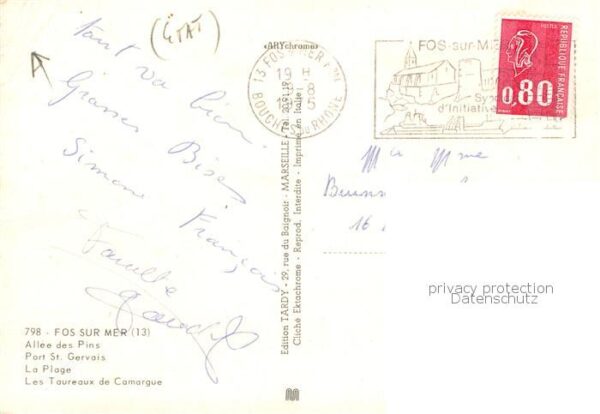 (ETAT)
tout va bien.
Grosses Bises
Simone François
Famille
798 - FOS SUR MER (13)
Allee des Pins
Port St. Gervais
La Plage
Les Taureaux de Camargue
«ARYchrome»
Edition TARDY - 29, rue du Baignoir - MARSEILLE - Tel. 20.91.19
Cliché Ektachrome - Reprod. Interdite - Imprimé en Italie
13 FOS MER
19 H
BOUCHES DU RHONE
FOS-sur-ME
Syn
d'Initiative
POSTES
REPUBLIQUE FRANÇAISE
0,80
Mr Mme
16
privacy protection
Datenschutz